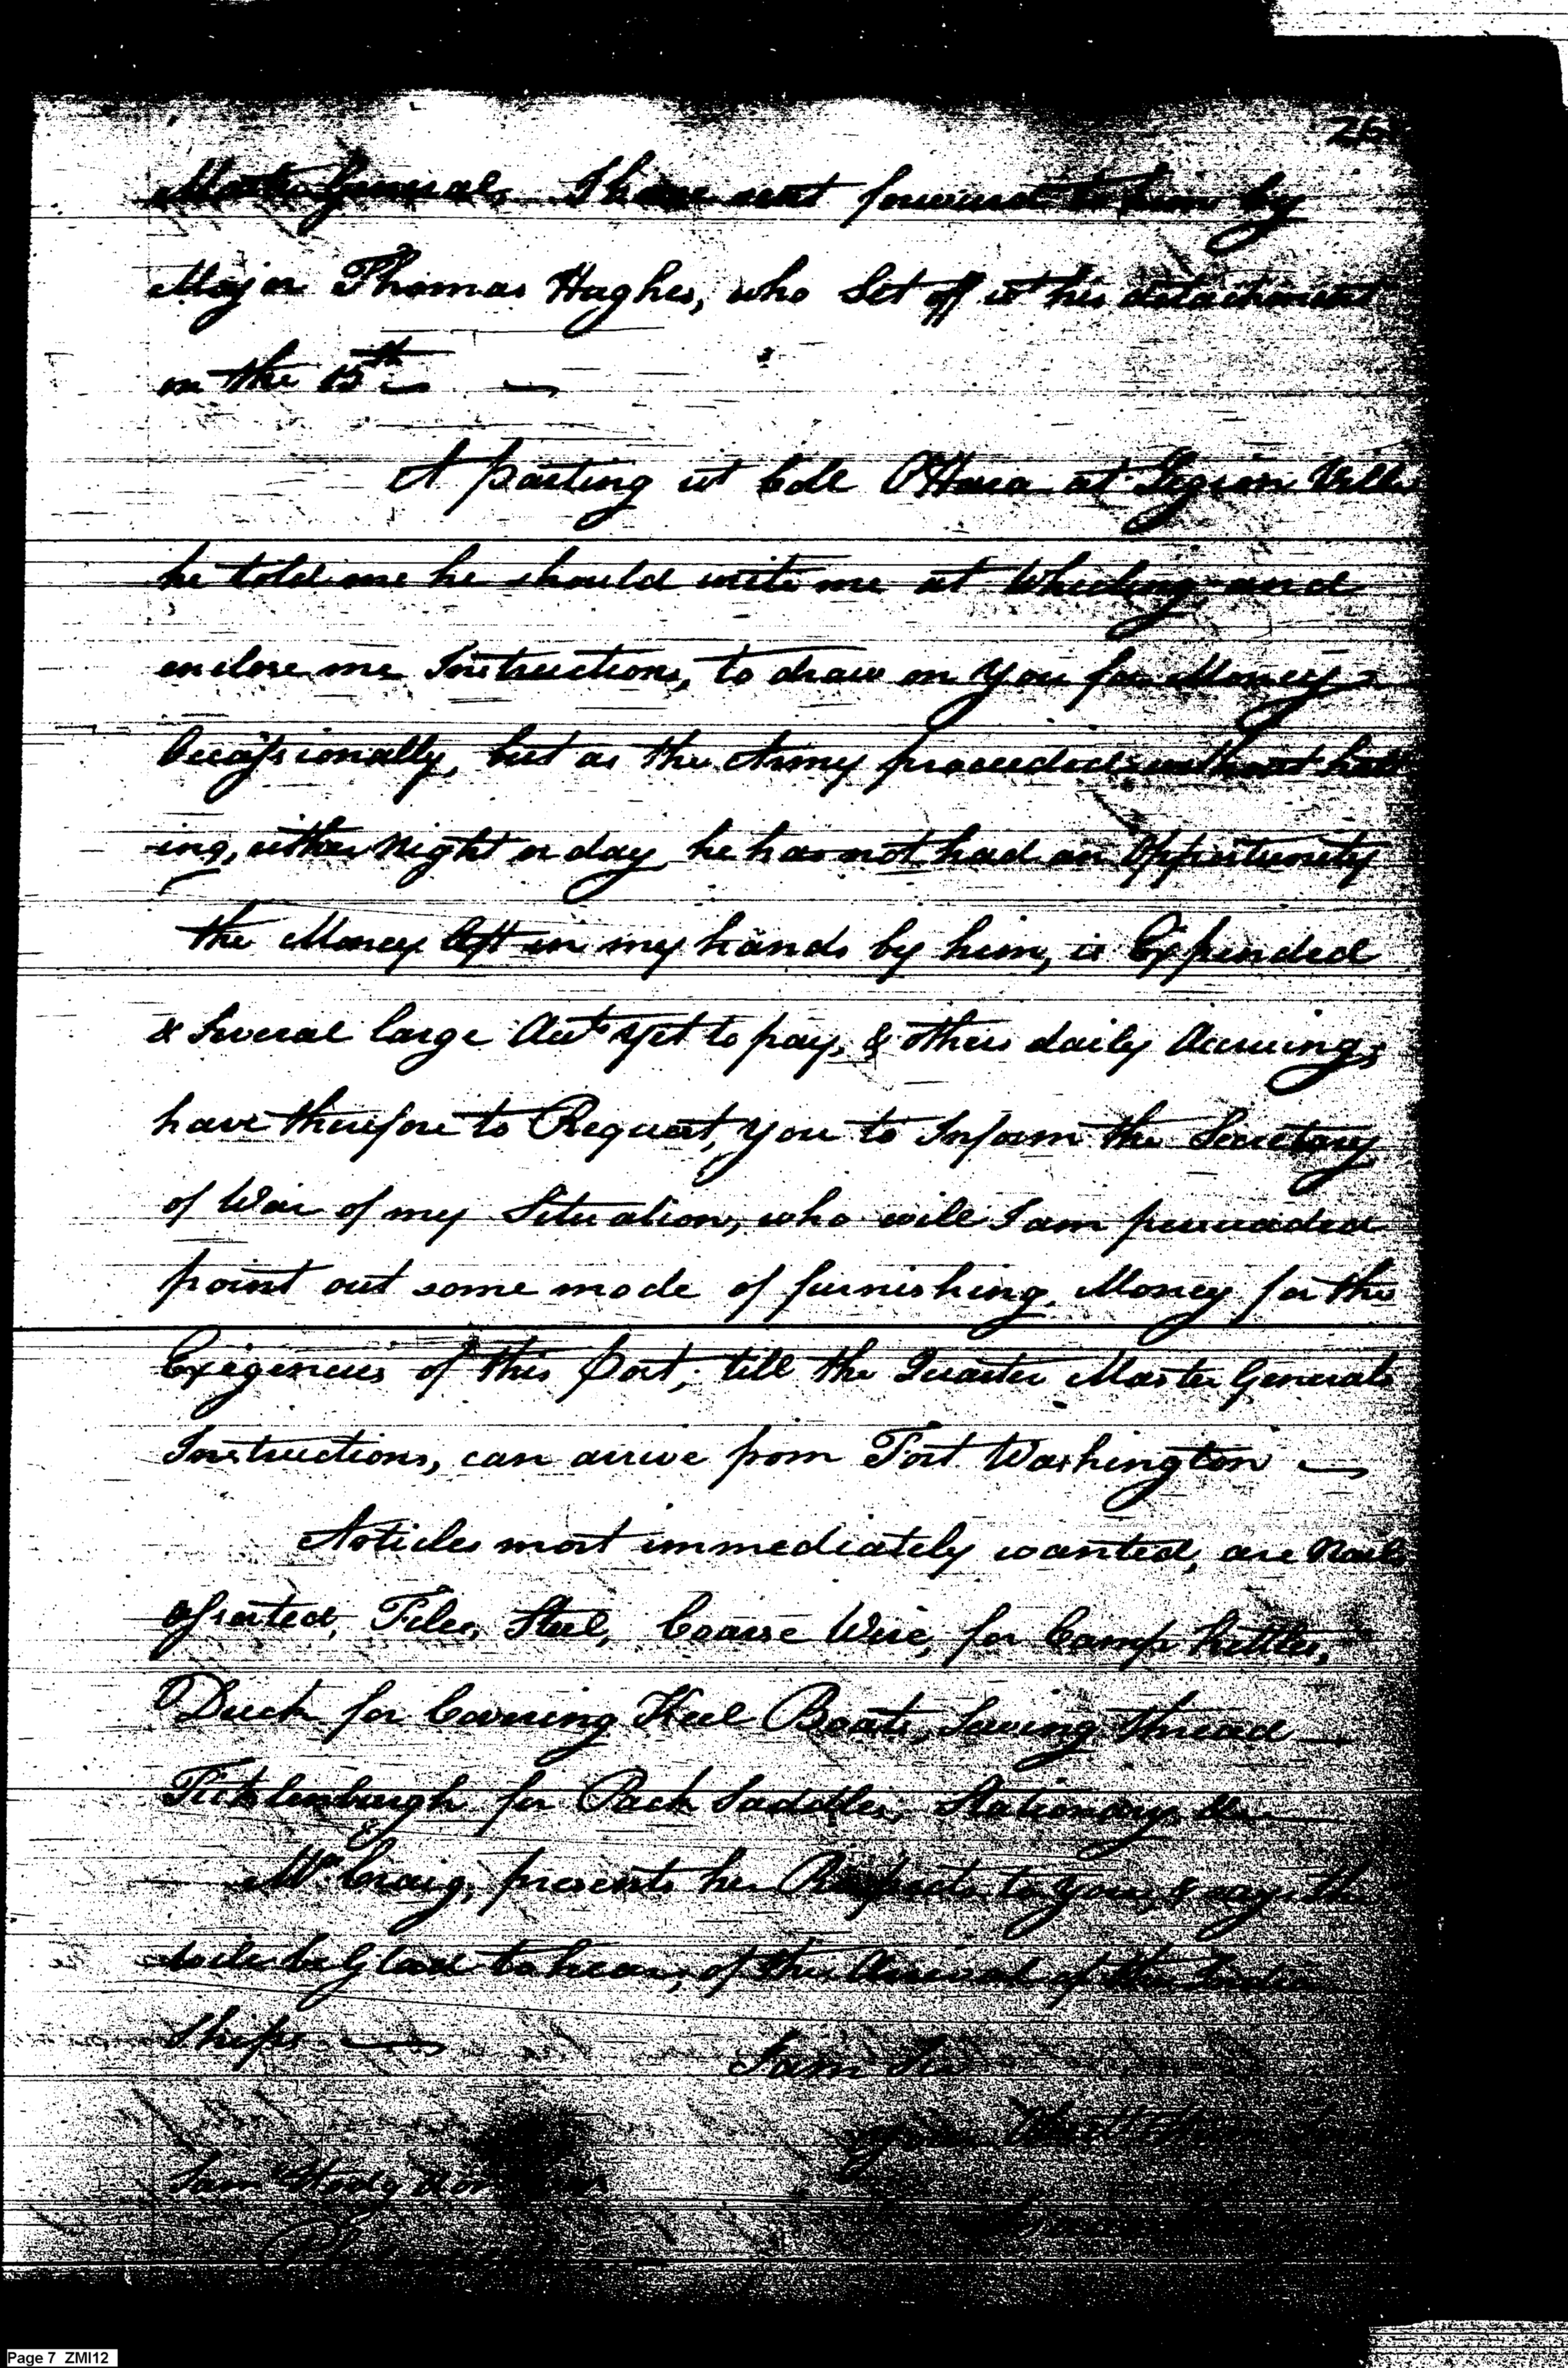 26
Master General, I have sent forward to him by
Major Thomas Hughes, who Set off wt his detachment
on the 15th
At parting wt Coll O'Hara at Legion Ville
he told me he should write me at Wheeling, and
enclose me Instructions, to draw on you for Money
Occassionally, but as the Army proceeded without halt
ing, either Night or day, he has not had an Opportunity
the Money left in my hands by him, is Expended
& Several large Acts yet to pay, & others daily Accruing;
have therefore to Request, you to Inform the Secretary
of War of my Situation, who will I am persuaded
point out some mode of furnishing Money for the
Exigencies of this Post, till the Quarter Master Generals
Instructions, can arrive from Fort Washington
Articles most immediately wanted, are Nails
assorted, Files, Steel, Coarse Wire, for Camp Kettles,
Duck for Covering Keel Boats, Sewing thread
Ticklenburgh for Pack Saddles, Stationary &c
Mrs Craig, presents her Respects to you, & says she
wile be Glad to hear, of the Arrival of the India
Ships
I am Sir
your Obedt
Sam Hodgdon
Page 7 ZMI12